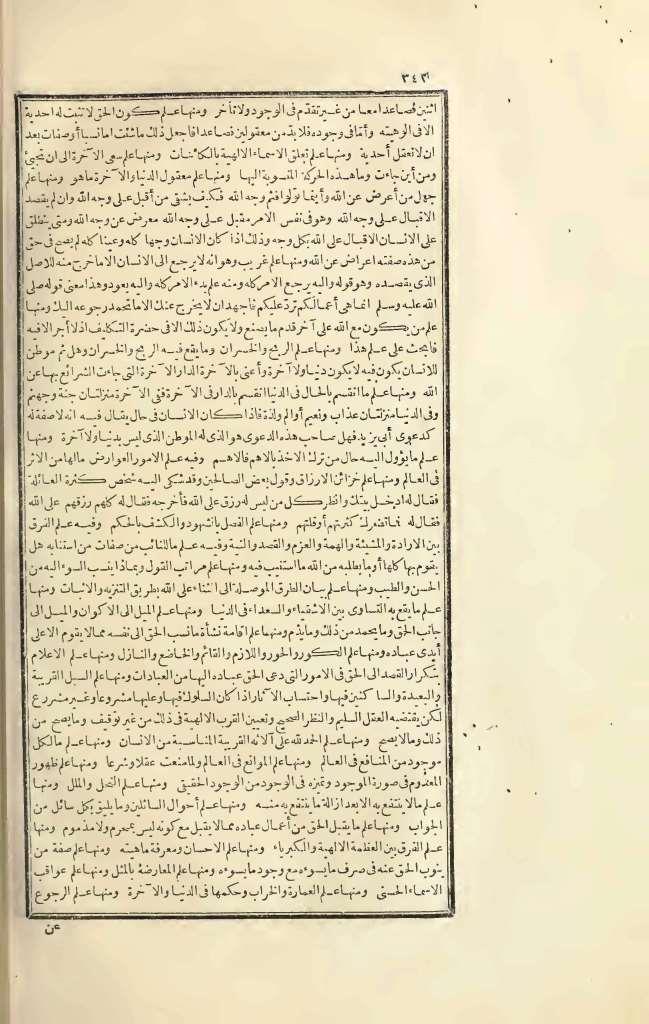 ٣٤٣
اثنين فصاعدا معا من غير تقدم فى الوجود ولا تأخر ومنها علم كون الحق لا تثبت له احدية
الا فى الوهيته وأما فى وجوده فلا بد من معقولين فصاعدا فاجعل ذلك ما شئت اما نسبا أو صفات بعد
ان لا تعقل أحدية ومنها علم تعلق الاسماء الالهية بالكائنات ومنها علم سعى الآخرة الى ان تجيئ
ومن أين جاءت وما هذه الحركة المنسوبة اليها ومنها علم معقول الدنيا والآخرة ما هو ومنها علم
جهل من أعرض عن الله وأينما تولوا فثم وجه الله فكيف يشقى من أقبل على وجه الله وان لم يقصد
الاقبال على وجه الله وهو فى نفس الامر مقبل على وجه الله معرض عن وجه الله ومتى ينطلق
على الانسان الاقبال على الله بكل وجه وذلك اذا كان الانسان وجها كله وعينا كله لم يصح فى حق
من هذه صفته اعراض عن الله ومنها علم غريب وهو انه لا يرجع الى الانسان الا ما خرج منه للاصل
الذى يقصده وهو قوله واليه يرجع الامر كله ومنه علم بدء الامر كله واليه يعود وهذا معنى قوله صلى
الله عليه وسلم انما هى أعمالكم ترد عليكم فاجهد ان لا يخرج عنك الا ما تحمد رجوعه اليك ومنها
علم من يكون مع الله على آخر قدم ما يصنع ولا يكون ذلك الا فى حضرة التكليف اذ لا أجر الا فيه
فابحث على علم هذا ومنها علم الربح والخسران وما يقع فيه الربح والخسران وهل ثم موطن
للانسان يكون فيه لا يكون دنيا ولا آخرة وأعنى بالآخرة الدار الآخرة التى جاءت الشرائع بها عن
الله ومنها علم ما انقسم بالحال فى الدنيا انقسم بالدار فى الآخرة ففى الآخرة منزلتان جنة وجهنم
وفى الدنيا منزلتان عذاب ونعيم أو ألم ولذة فاذا كان الانسان فى حال يقال فيه انه لا صفة له
كدعوى أبى يزيد فهل صاحب هذه الدعوى هو الذى له الموطن الذى ليس بدنيا ولا آخرة ومنها
علم ما يؤول اليه حال من ترك الاخذ بالاهم فالاهم وفيه علم الامور العوارض ما لها من الاثر
فى العالم ومنها علم خزائن الارزاق وقول بعض الصالحين وقد شكى اليه شخص كثرة العائلة
فقال له ادخل بيتك وانظر كل من ليس له رزق على الله فأخرجه فقال له كلهم رزقهم على الله
فقال له فما تضرك كثرتهم أو قلتهم ومنها علم الفصل بالشهود والكشف بالحكم وفيه علم الفرق
بين الارادة والمشيئة والهمة والعزم والقصد والنية وفيه علم ما للنائب من صفات من استنابه هل
يقوم بها كلها أو ما يطلبه من الله ما استنيب فيه ومنها علم مراتب القول وبماذا ينسب السوء اليه من
الحسن والطيب ومنها علم بيان الطرق الموصلة الى الثناء على الله بطريق التنزيه والاثبات ومنها
علم ما يقع به التساوى بين الاشقياء والسعداء فى الدنيا ومنها علم الميل الى الاكوان والميل الى
جانب الحق وما يحمد من ذلك وما يذم ومنها علم اقامة نشأة ما نسب الحق الى نفسه مما لا يقوم الا على
أيدى عباده ومنها علم الكور والحور واللازم والقائم والخاضع والنازل ومنها علم الاعلام
بتكرار القصد الى الحق فى الامور التى دعى الحق عباده اليها من العبادات ومنها علم السبل القريبة
والبعيدة والسالكين فيها واحتساب الآثار اذا كان السلوك فيها وعليها مشروعا وغير مشروع
لكن يقتضيه العقل السليم والنظر الصحيح وتعيين القرب الالهية فى ذلك من غير توقيف وما يصح من
ذلك وما لا يصح ومنها علم الحمد لله على آلائه القريبة المناسبة من الانسان ومنها علم ما لكل
موجود من المنافع فى العالم ومنها علم الموانع فى العالم ولما منعت عقلا وشرعا ومنها علم ظهور
المعدوم فى صورة الموجود وتميزه فى الوجود من الوجود الحقيقى ومنها علم النحل والملل ومنها
علم ما لا ينتفع به الا بعد ازالة ما ينتفع به منه ومنها علم أحوال السائلين وما يليق بكل سائل من
الجواب ومنها علم ما يقبل الحق من أعمال عباده مما لا يقبل مع كونه ليس بمحرم ولا مذموم ومنها
علم الفرق بين العظمة الالهية والكبرياء ومنها علم الاحسان ومعرفة ماهيته ومنها علم صفة من
ينوب الحق عنه فى صرف ما يسوءه مع وجود ما يسوءه ومنها علم المعارضة بالمثل ومنها علم عواقب
الاسماء الحسنى ومنها علم العمارة والخراب وحكمها فى الدنيا والآخرة ومنها علم الرجوع
عن